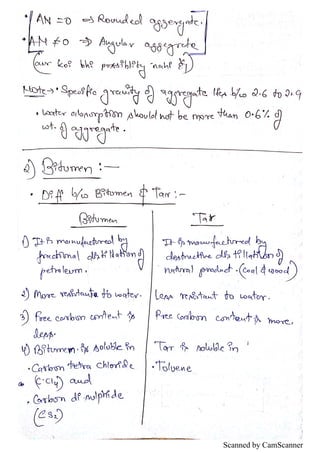 • AN = 0 ⇒ Rounded aggregate.
• AN ≠ 0 ⇒ Angular aggregate
(aur koi bhi possiblity nahi h)
Note→ • Specific gravity of aggregate lies b/w 2.6 to 2.9
• water absorption should not be more than 0.6% of
wt. of aggregate.
2) Bitumen :—
• Diff b/w Bitumen & Tar :-
Bitumen
Tar
1) It is manufactured by
fractional distillation of
petroleum.
It is manufactured by
destructive distillation of
natural product. (coal & wood)
2) More resistante to water.
Less resistant to water.
3) Free carbon content is
less.
Free carbon content is more.
4) Bitumen is soluble in
• Carbon tetra chloride
(CCl4) and
• Carbon di sulphide
(CS2)
Tar is soluble in
• Toluene
Scanned by CamScanner